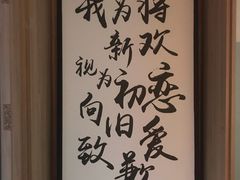 我为将
新欢
视为初恋
向旧爱
致